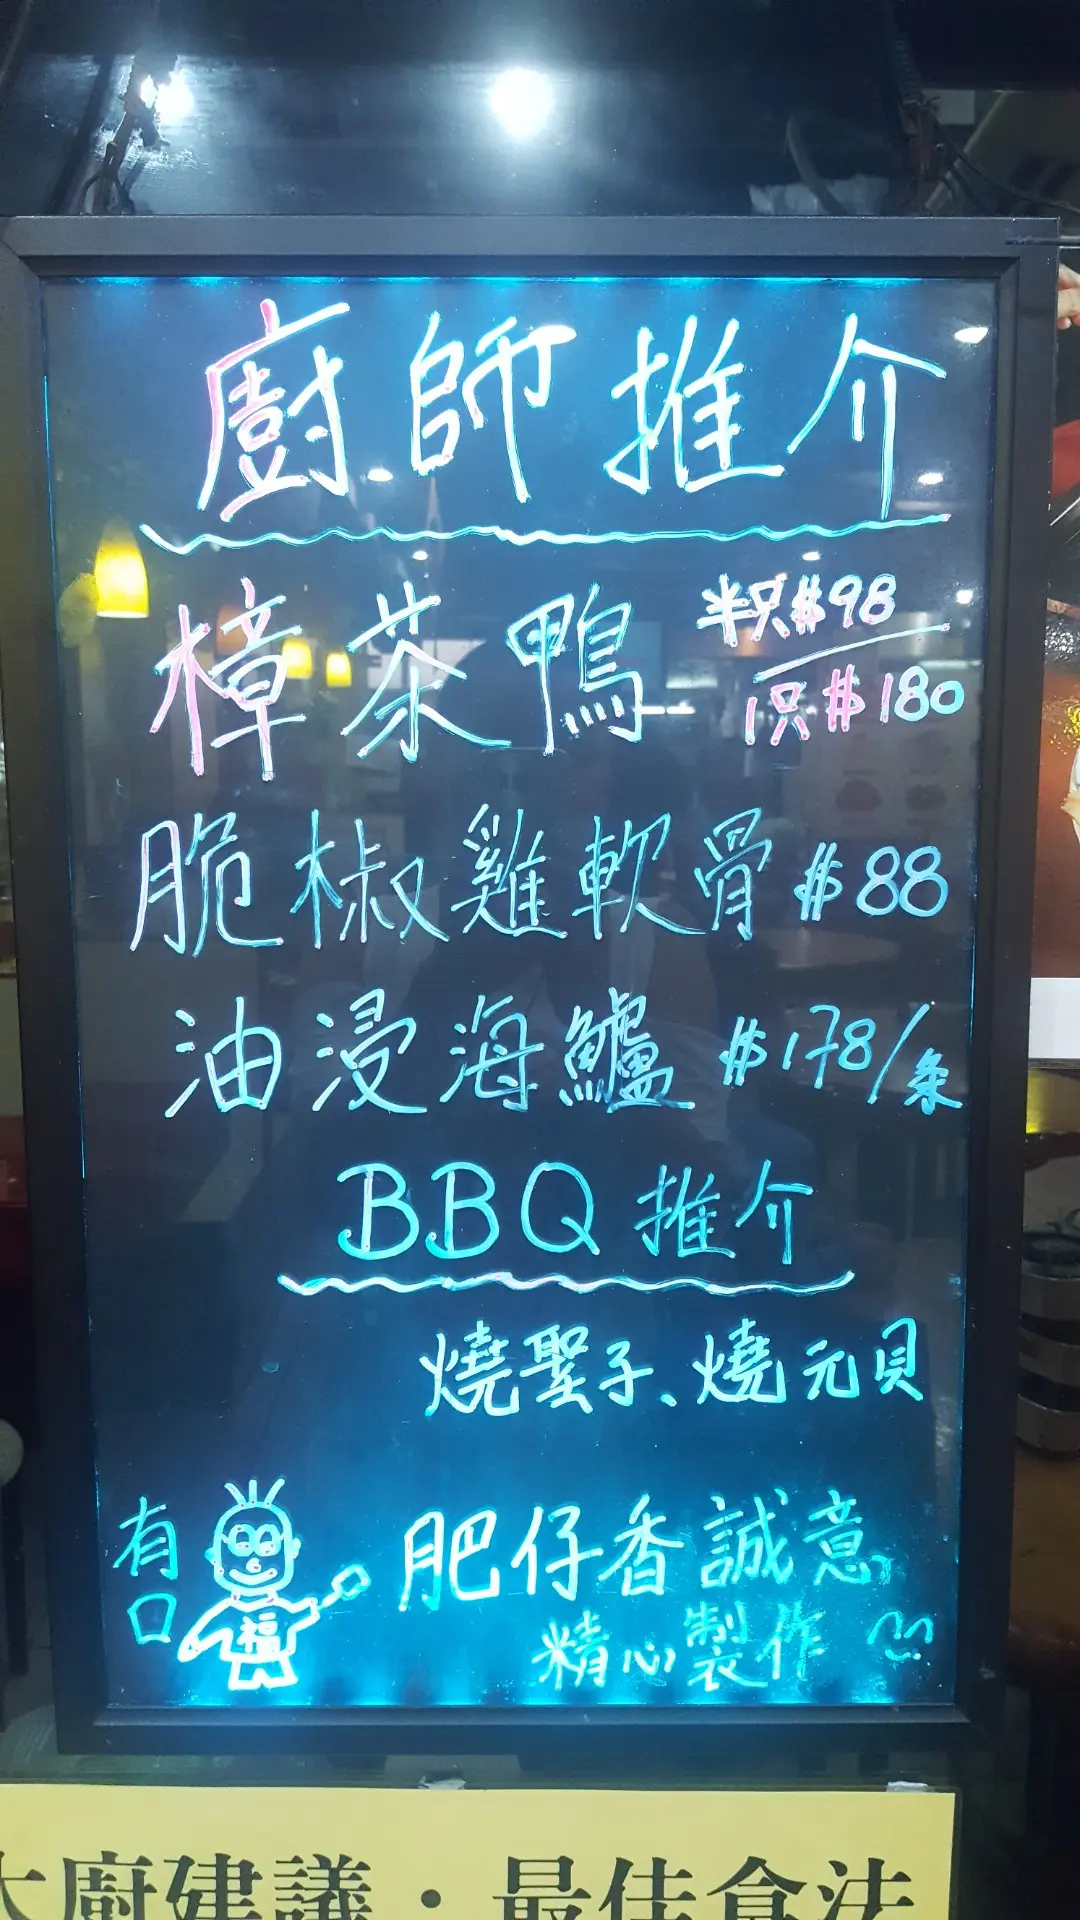 廚師推介
樟茶鴨 半只$98
1只$180
脆椒雞軟骨 $88
油浸海鱸 $178/条
BBQ 推介
燒聖子、燒元貝
有口福
肥仔香誠意
精心製作
大廚建議·最佳食法